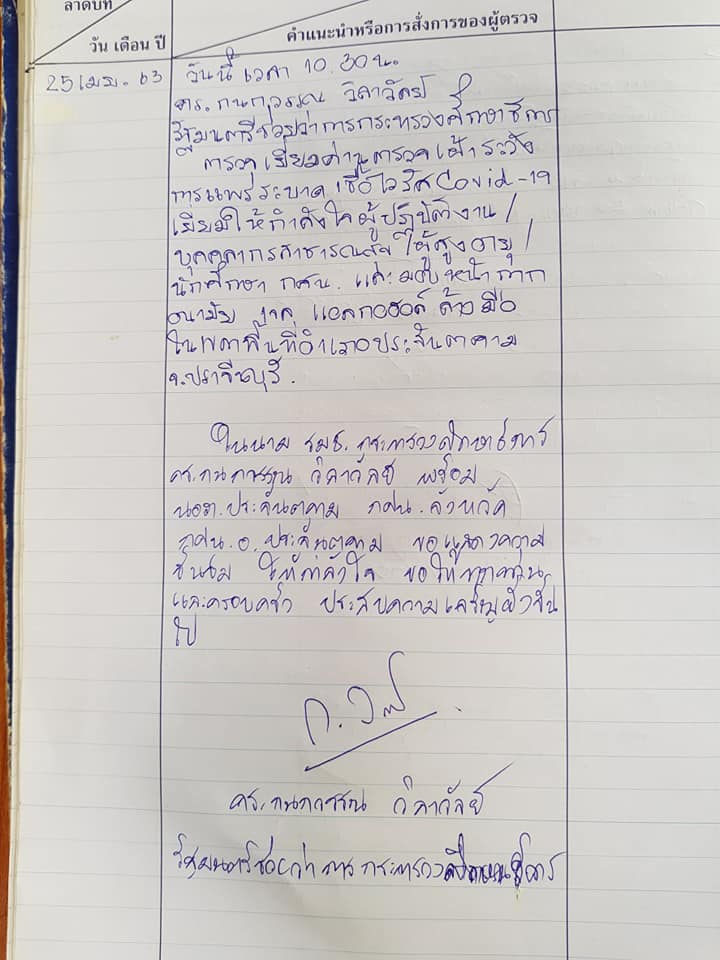 ลำดับที่
วัน เดือน ปี
คำแนะนำหรือการสั่งการของผู้ตรวจ
25 เมย. 63 วันนี้ เวลา 10.30 น.
ดร.กนกวรรณ วิลาวัลย์
รัฐมนตรีช่วยว่าการกระทรวงศึกษาธิการ
ตรวจเยี่ยมด่านตรวจเฝ้าระวัง
การแพร่ระบาดเชื้อไวรัส Covid-19
เยี่ยมให้กำลังใจผู้ปฏิบัติงาน/
บุคคลากรสาธารณสุข ผู้สูงอายุ/
นักศึกษา กศน. และมอบหน้ากาก
อนามัย เจล แอลกอฮอล์ ล้างมือ
ในเขตพื้นที่อำเภอประจันตคาม
จ.ปราจีนบุรี.
ในนาม รมช. กระทรวงศึกษาธิการ
ดร.กนกวรรณ วิลาวัลย์ พร้อม
นอภ.ประจันตคาม กศน.จังหวัด
กศน.อ.ประจันตคาม ขอแสดงความ
ชื่นชม ให้กำลังใจ ขอให้ทุกท่าน
และครอบครัว ประสบความเจริญยิ่งขึ้น
ไป
ดร.กนกวรรณ วิลาวัลย์
รัฐมนตรีช่วยว่าการกระทรวงศึกษาธิการ